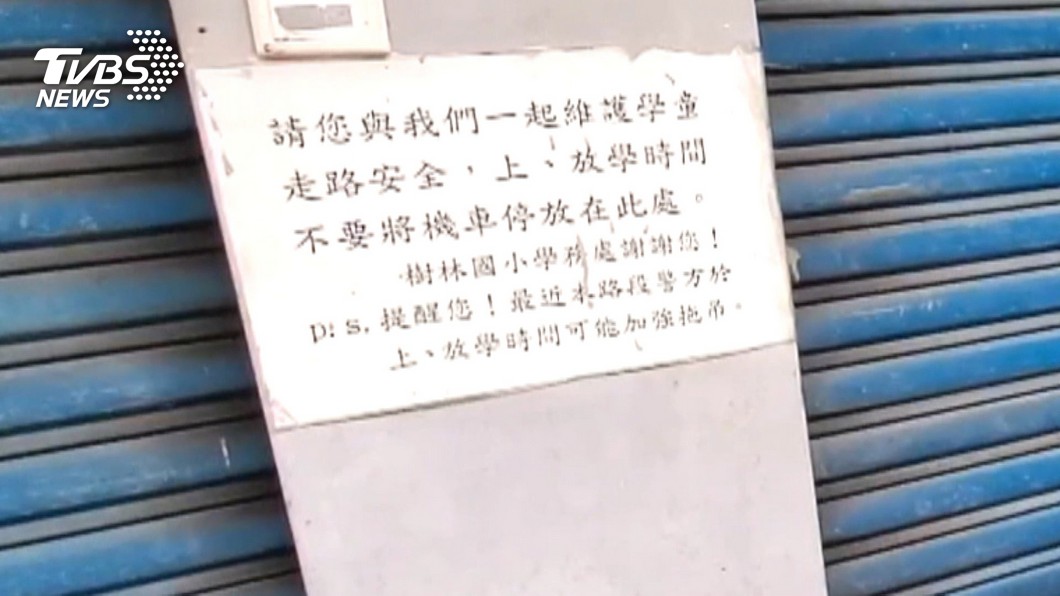 TVBS
NEWS
請您與我們一起維護學童
走路安全，上、放學時間
不要將機車停放在此處。
樹林國小學務處謝謝您！
P.S. 提醒您！最近本路段警方於
上、放學時間可能加強拖吊。